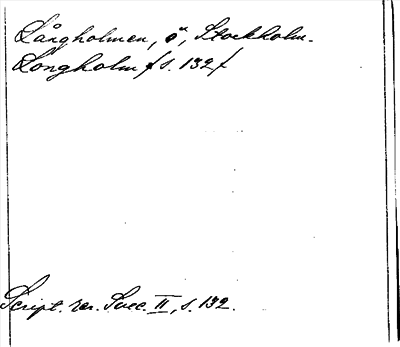 Långholmen, ö, Stockholm.
Longholm f s. 132 f
Script. rer. Suec. II, s. 132.